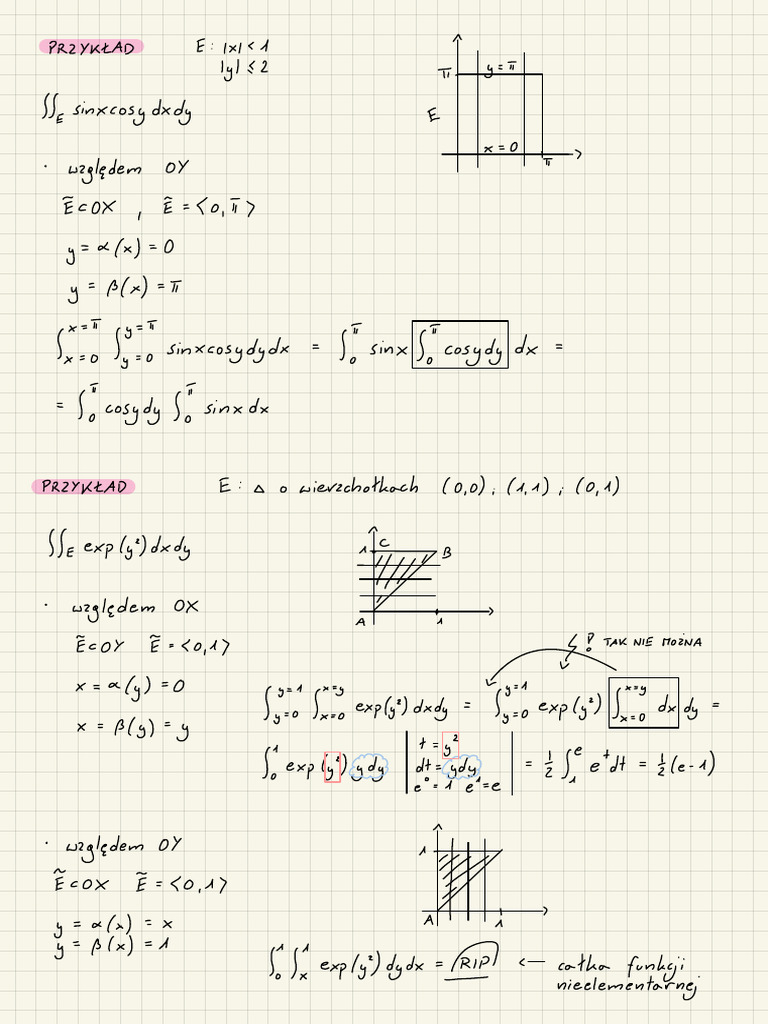 PRZYKŁAD E: |x| < 1
|y| ≤ 2
∬_E sinxcosy dxdy
π y = π
E
x = 0
π
· względem OY
Ẽ⊂OX , Ẽ = <0, π>
y = α(x) = 0
y = β(x) = π
∫_{x=0}^{x=π} ∫_{y=0}^{y=π} sinxcosydydx = ∫_0^π sinx ∫_0^π cosydy dx =
= ∫_0^π cosydy ∫_0^π sinxdx
PRZYKŁAD E: △ o wierzchołkach (0,0), (1,1), (0,1)
∬_E exp(y²)dxdy
1 C B
A 1
· względem OX
Ẽ⊂OY Ẽ = <0,1>
! TAK NIE MOŻNA
x = α(y) = 0
x = β(y) = y
∫_{y=0}^{y=1} ∫_{x=0}^{x=y} exp(y²)dxdy = ∫_{y=0}^{y=1} exp(y²) ∫_{x=0}^{x=y} dx dy =
∫_0^1 exp(y²) ydy | t = y² dt = ydy e⁰ = 1 e¹ = e | = 1/2 ∫_1^e e^t dt = 1/2 (e-1)
· względem OY
Ẽ⊂OX Ẽ = <0,1>
1
A 1
y = α(x) = x
y = β(x) = 1
∫_0^1 ∫_x^1 exp(y²)dydx = RIP ← całka funkcji
nieelementarnej